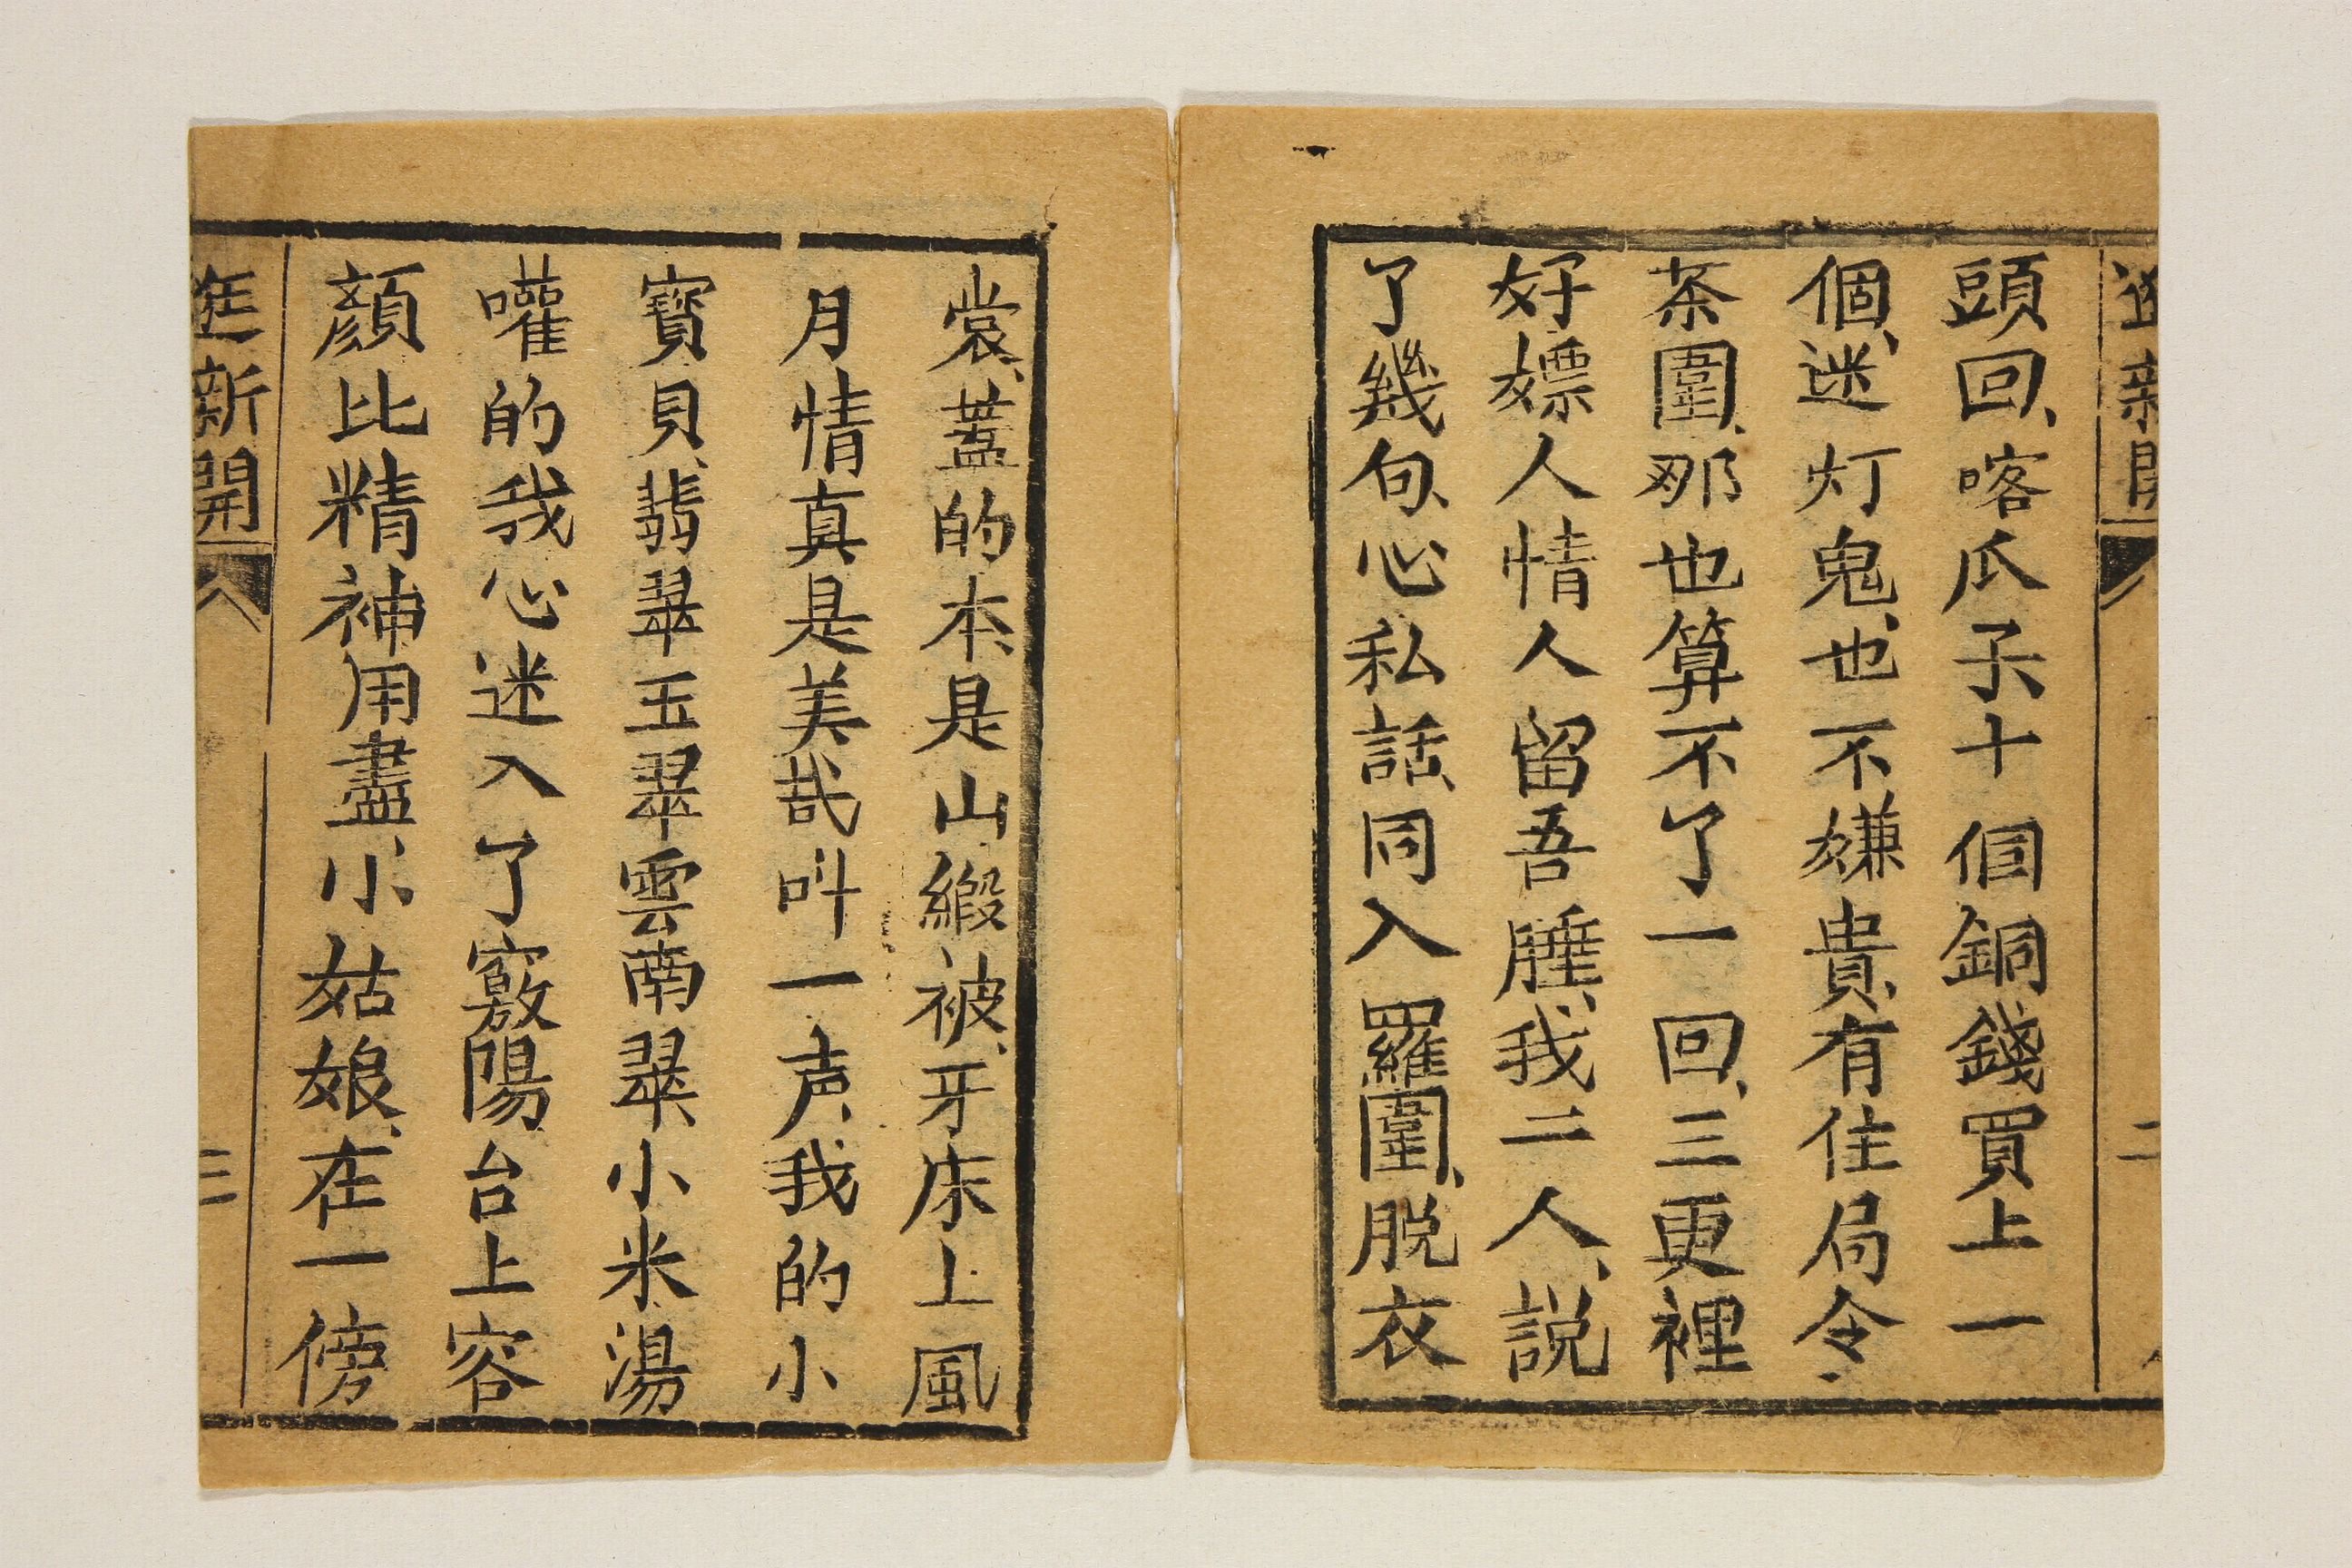 頭回、喀瓜子十個銅錢買上一
個、迷灯鬼、也不嫌貴、有住局令、
茶圍、那也算不了一回、三更裡
好嫖人情人留吾睡、我二人、説
了幾句、心私話、同入羅圍、脱衣
裳、蓋的本是山緞被、牙床上風
月情真是美哉叫一声、我的小
寳貝、翡翠玉翠雲南翠、小米湯
嚾的我心迷入了竅陽台上容
顔比精神用盡、小姑娘、在一傍
逛新開
三
新開
二